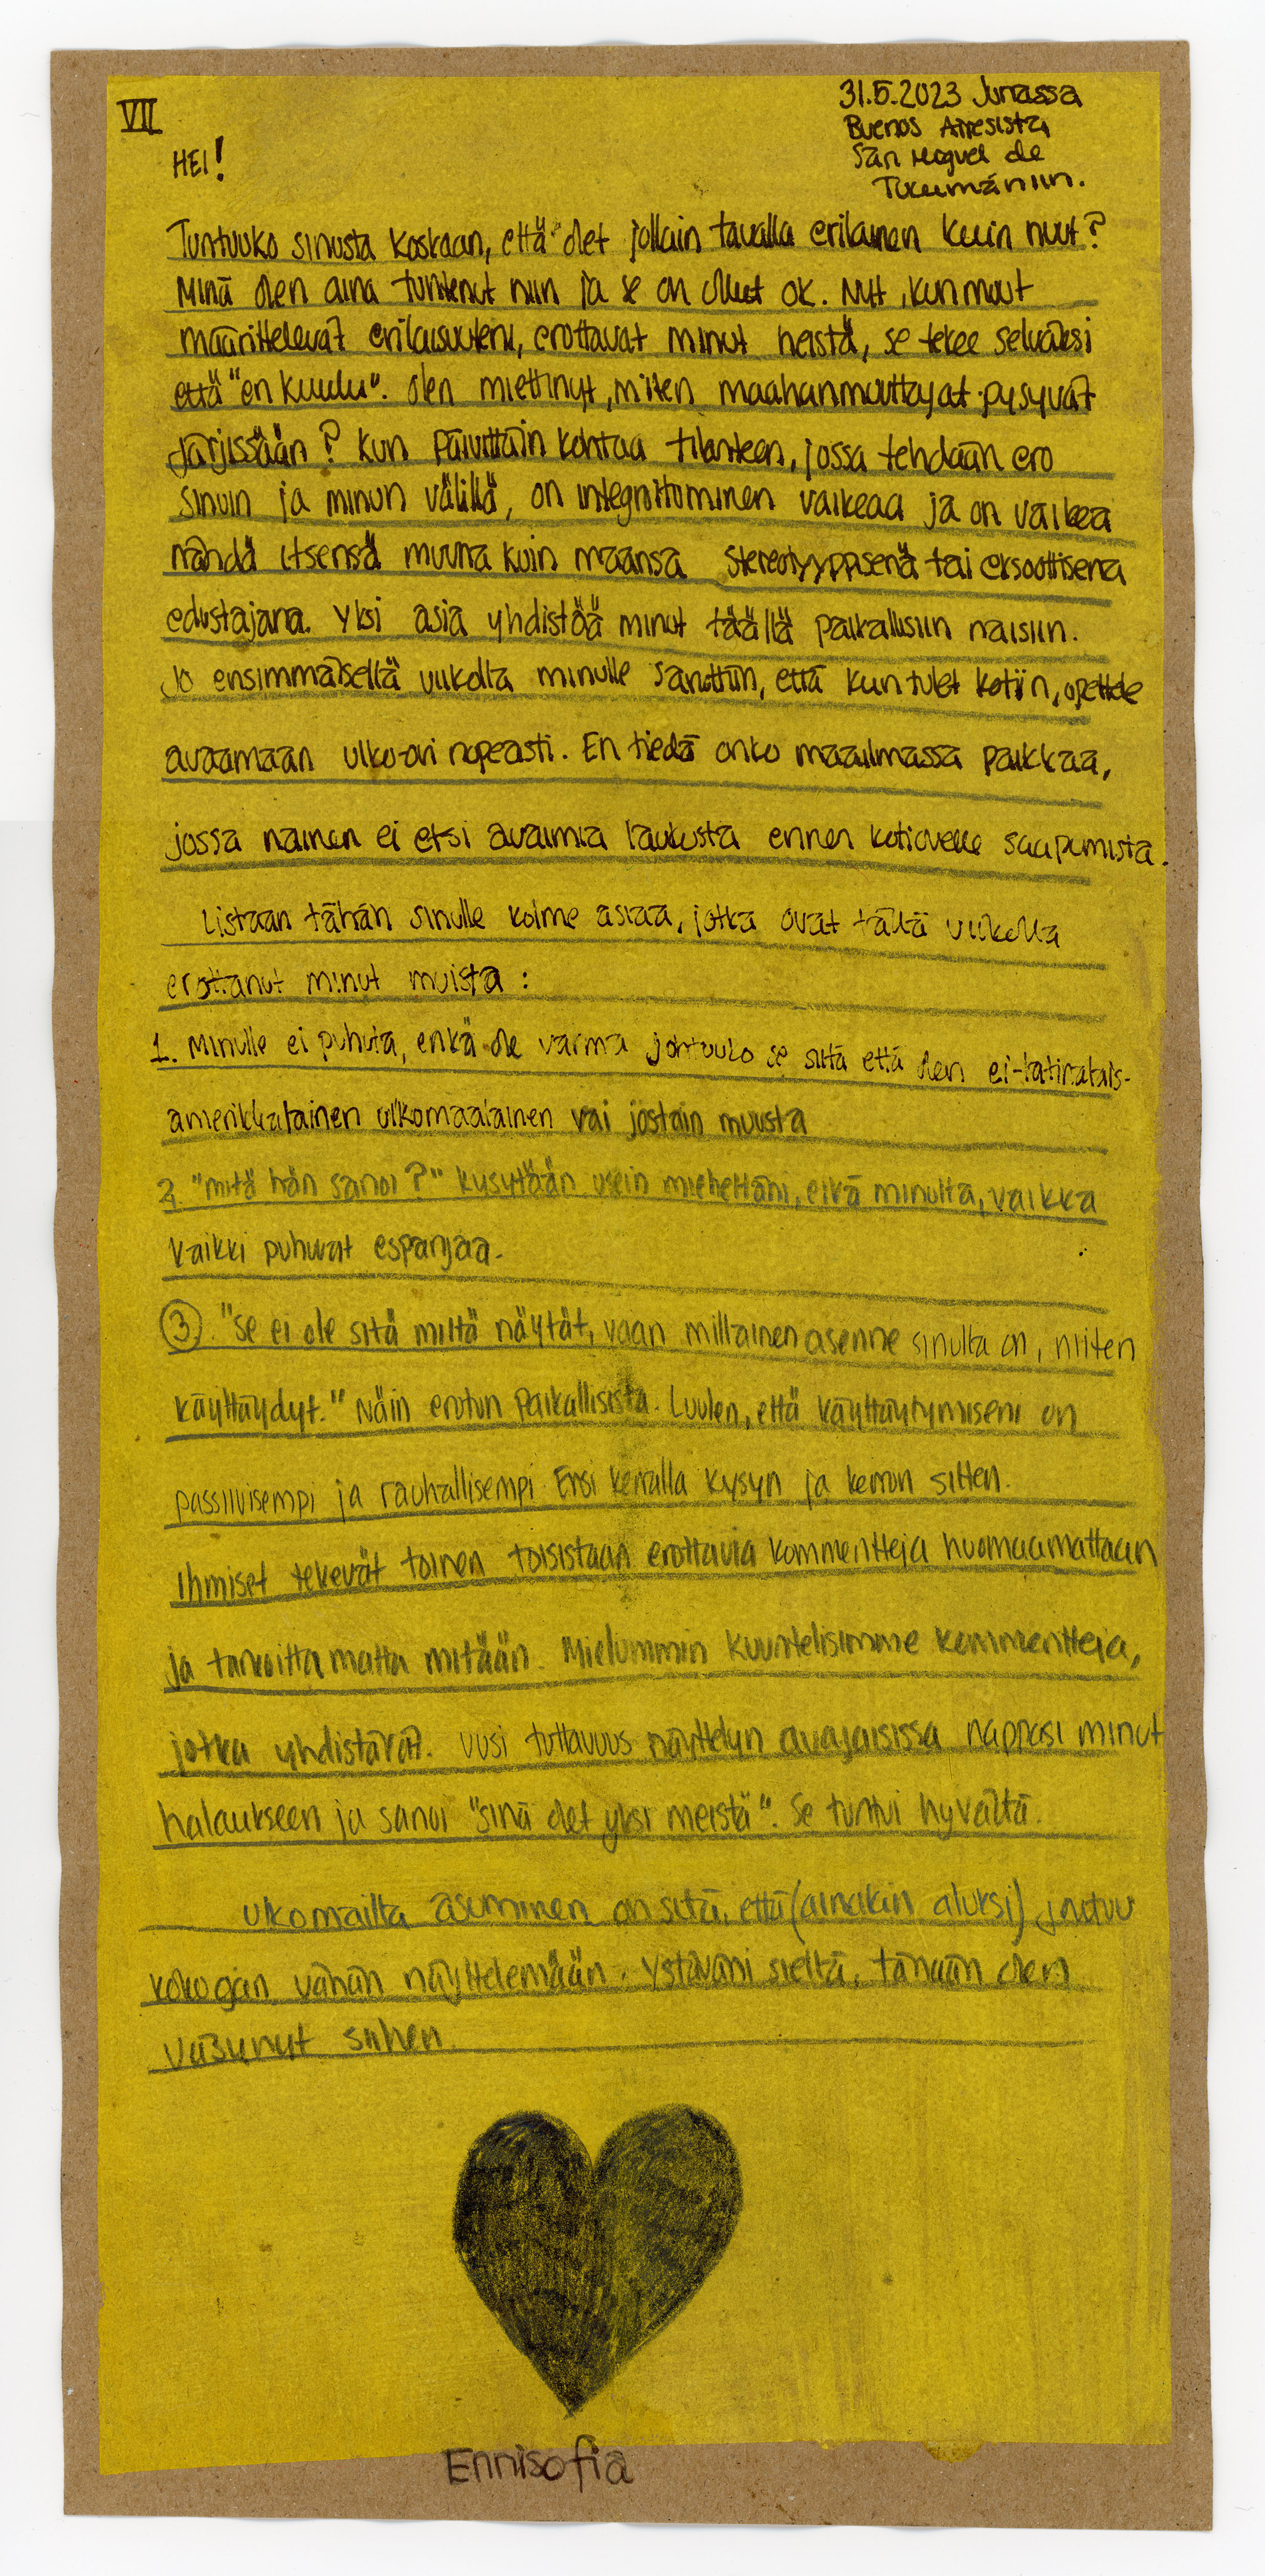 VII
31.5.2023 Junassa
Buenos Airesista
San Miguel de
Tucumániin.
HEI!
Tuntuuko sinusta koskaan, että olet jollain tavalla erilainen kuin muut?
Minä olen aina tuntenut niin ja se on ollut ok. Nyt, kun muut
määrittelevät erilaisuuteni, erottavat minut heistä, se tekee selväksi
että "en kuulu". Olen miettinyt, miten maahanmuuttajat pysyvät
järjissään? Kun päivittäin kohtaa tilanteen, jossa tehdään ero
sinun ja minun välillä, on integroituminen vaikeaa ja on vaikea
nähdä itsensä muuna kuin maansa stereotyyppisenä tai eksoottisena
edustajana. Yksi asia yhdistää minut täällä paikallisiin naisiin.
Jo ensimmäisellä viikolla minulle sanottiin, että kun tulet kotiin, opettele
avaamaan ulko-ovi nopeasti. En tiedä onko maailmassa paikkaa,
jossa nainen ei etsi avaimia laukusta ennen kotiovelle saapumista.
Listaan tähän sinulle kolme asiaa, jotka ovat tällä viikolla
erottanut minut muista:
1. Minulle ei puhuta, enkä ole varma johtuuko se siitä että olen ei-latinalais-
amerikkalainen ulkomaalainen vai jostain muusta
2. "mitä hän sanoi?" kysytään usein mieheltäni, eikä minulta, vaikka
kaikki puhuvat espanjaa.
3. "Se ei ole sitä miltä näytät, vaan millainen asenne sinulla on, miten
käyttäydyt." Näin erotun paikallisista. Luulen, että käyttäytymiseni on
passiivisempi ja rauhallisempi. Ensi kerralla kysyn ja kerron sitten.
Ihmiset tekevät toinen toisistaan erottavia kommentteja huomaamattaan
ja tarkoittamatta mitään. Mielummin kuuntelisimme kommentteja,
jotka yhdistävät. Uusi tuttavuus näyttelyn avajaisissa nappasi minut
halaukseen ja sanoi "sinä olet yksi meistä". Se tuntui hyvältä.
Ulkomailla asuminen on sitä, että (ainakin aluksi) joutuu
koko ajan vähän näyttelemään. Ystäväni sieltä, tänään olen
väsynyt siihen.
Ennisofia